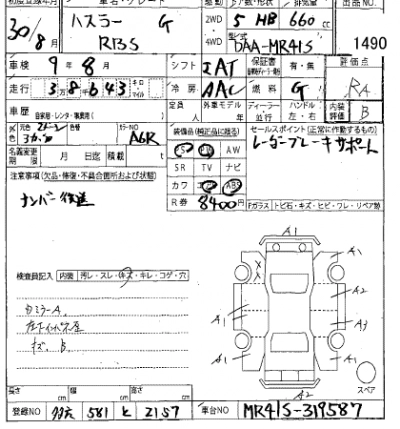 初度登録年月 車名・グレード 駆動 ドア数・形状 排気量 出品NO.
30/8月 ハスラー G 2WD 5 HB 660cc
RBS ・4WD 型式 DAA-MR41S 1490
車検 9年8月 シフト IAT 保証書 有・無 評価点
走行 38643 キロ・マイル 冷房 AAC 燃料 G ハンドル 左・右 RA
車歴 自家用・レンタ・事業用( ) 定員 人 外車モデル 年 ディーラー 並行 内装評価 B
外色 カラーNO A6R 装備品(純正品に限る) セールスポイント(正常に作動するもの)
名義変更期限 月 日迄 積載 t PS PW AW レーダーブレーキサポート
注意事項(欠品・修復・不具合箇所および状態) SR TV ナビ
ナンバー後送 カワ エアB ABS
R券 8400円 Fガラス トビ石・キズ・ヒビ・ワレ・リペア跡
A1
A1 A1
検査員記入 内装 汚・スレ・キズ・キレ・コゲ・穴
A2
ドミラーA A1 A3
キズ B
A1 A1
A2 スペア
長さ cm 幅 cm 高さ cm
登録NO 581 と 2157 車台NO MR41S-319587